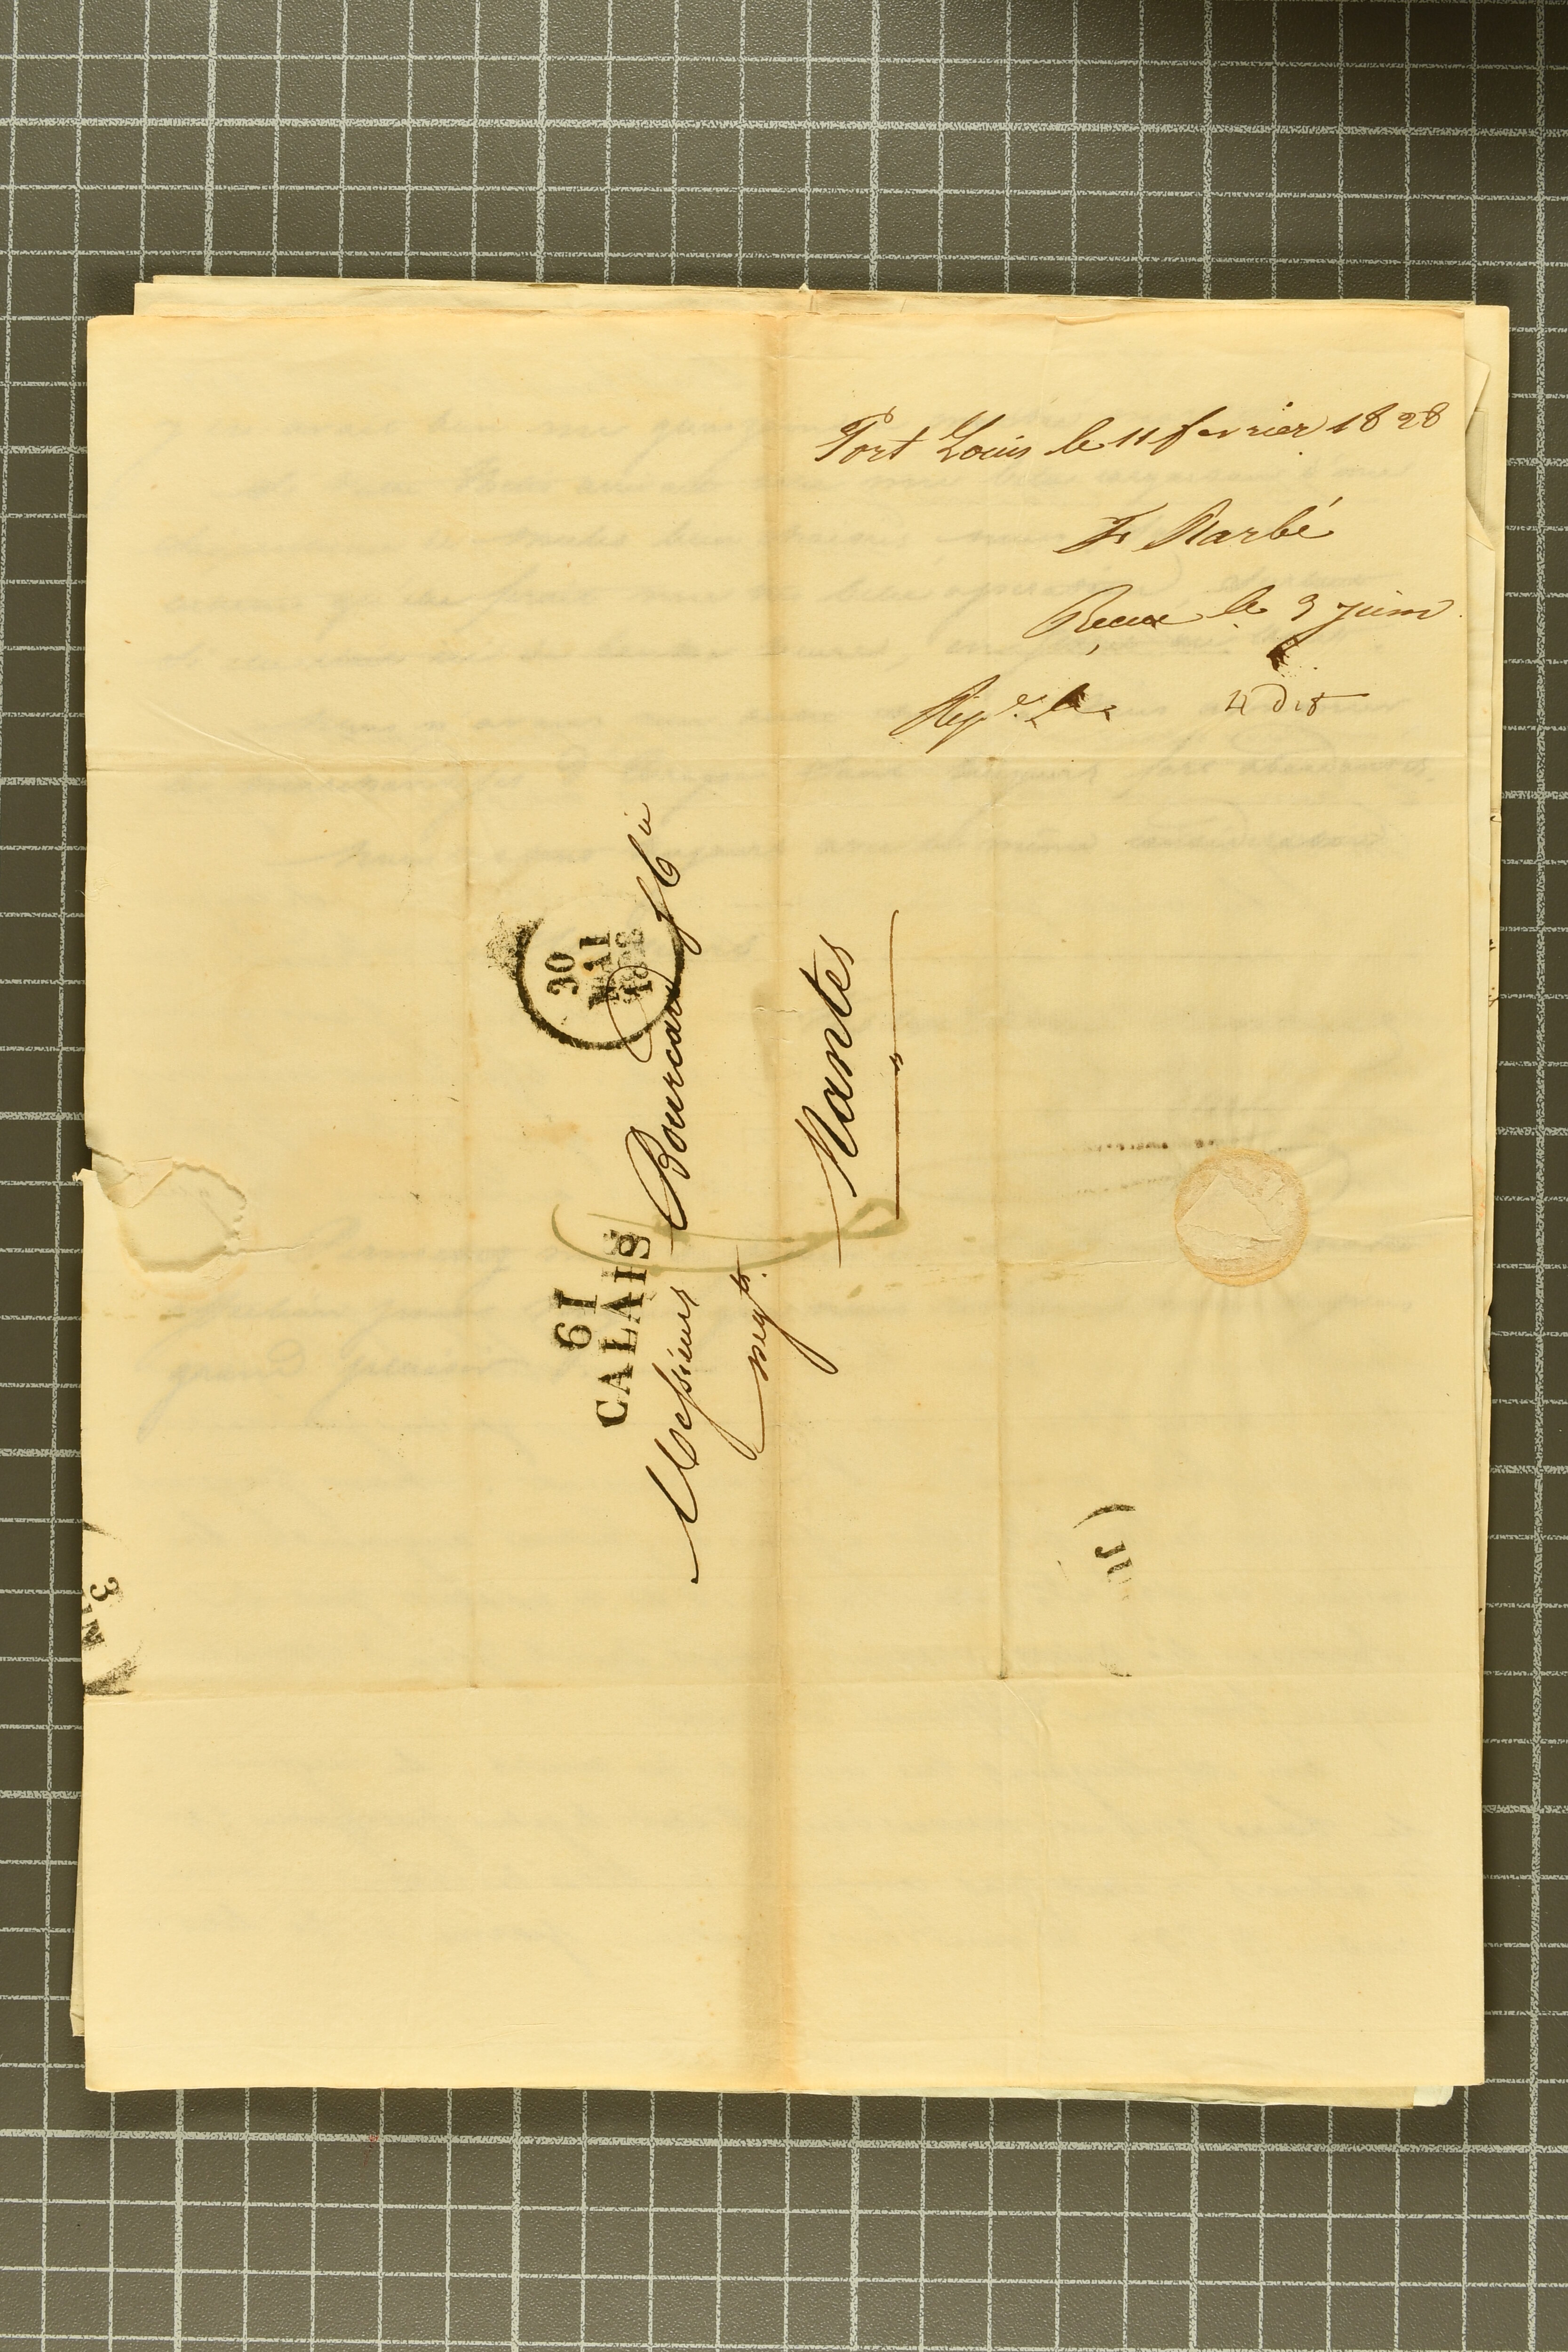 Port Louis le 11 fevrier 1828
F Barbé
Recue le 3 juin
Rep.e le 4 dit
30
MAI
1828
61
CALAIS
Messieurs Bourcard f & C.ie
neg.ts
Nantes
3
JUIN